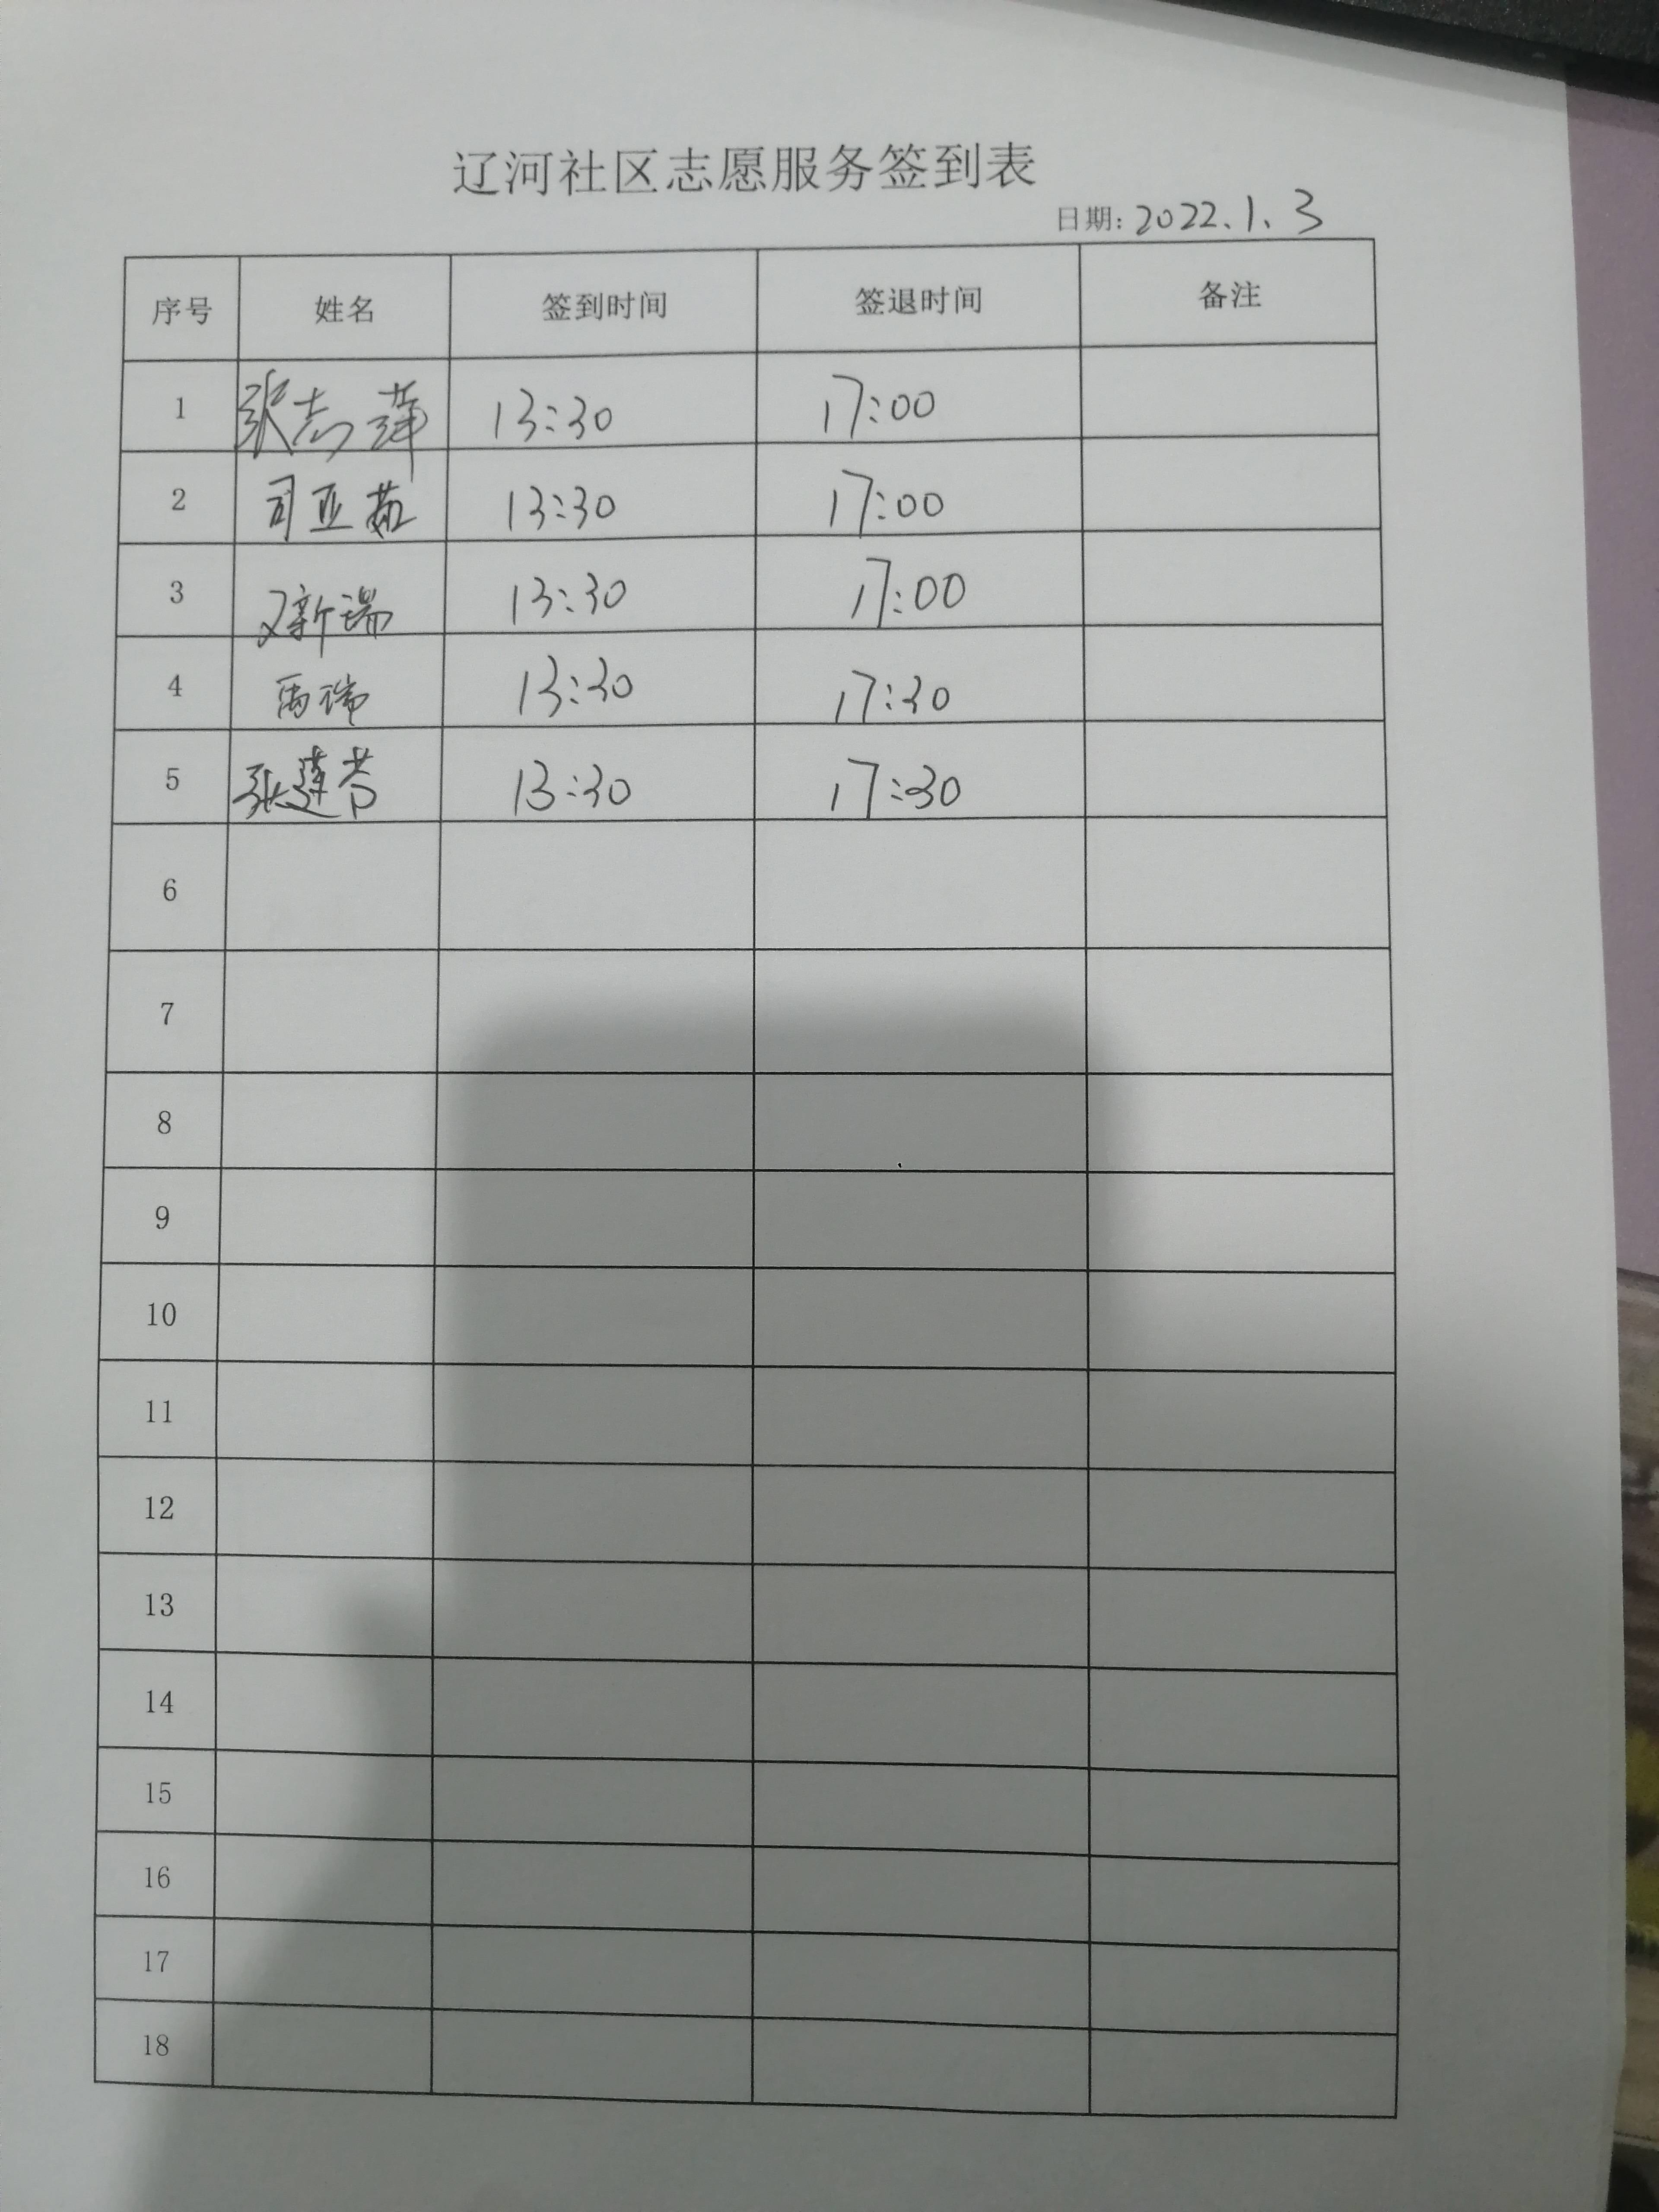 辽河社区志愿服务签到表
日期: 2022.1.3
序号 姓名 签到时间 签退时间 备注
1 张志萍 13:30 17:00
2 司亚茹 13:30 17:00
3 新瑞 13:30 17:00
4 禹瑞 13:30 17:30
5 张莲芳 13:30 17:30
6
7
8
9
10
11
12
13
14
15
16
17
18